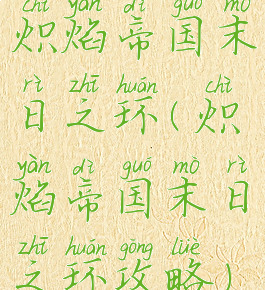 chì yàn dì guó mò
炽焰帝国末
rì zhī huán chì
日之环(炽
yàn dì guó mò rì
焰帝国末日
zhī huán gōng lüè
之环攻略)